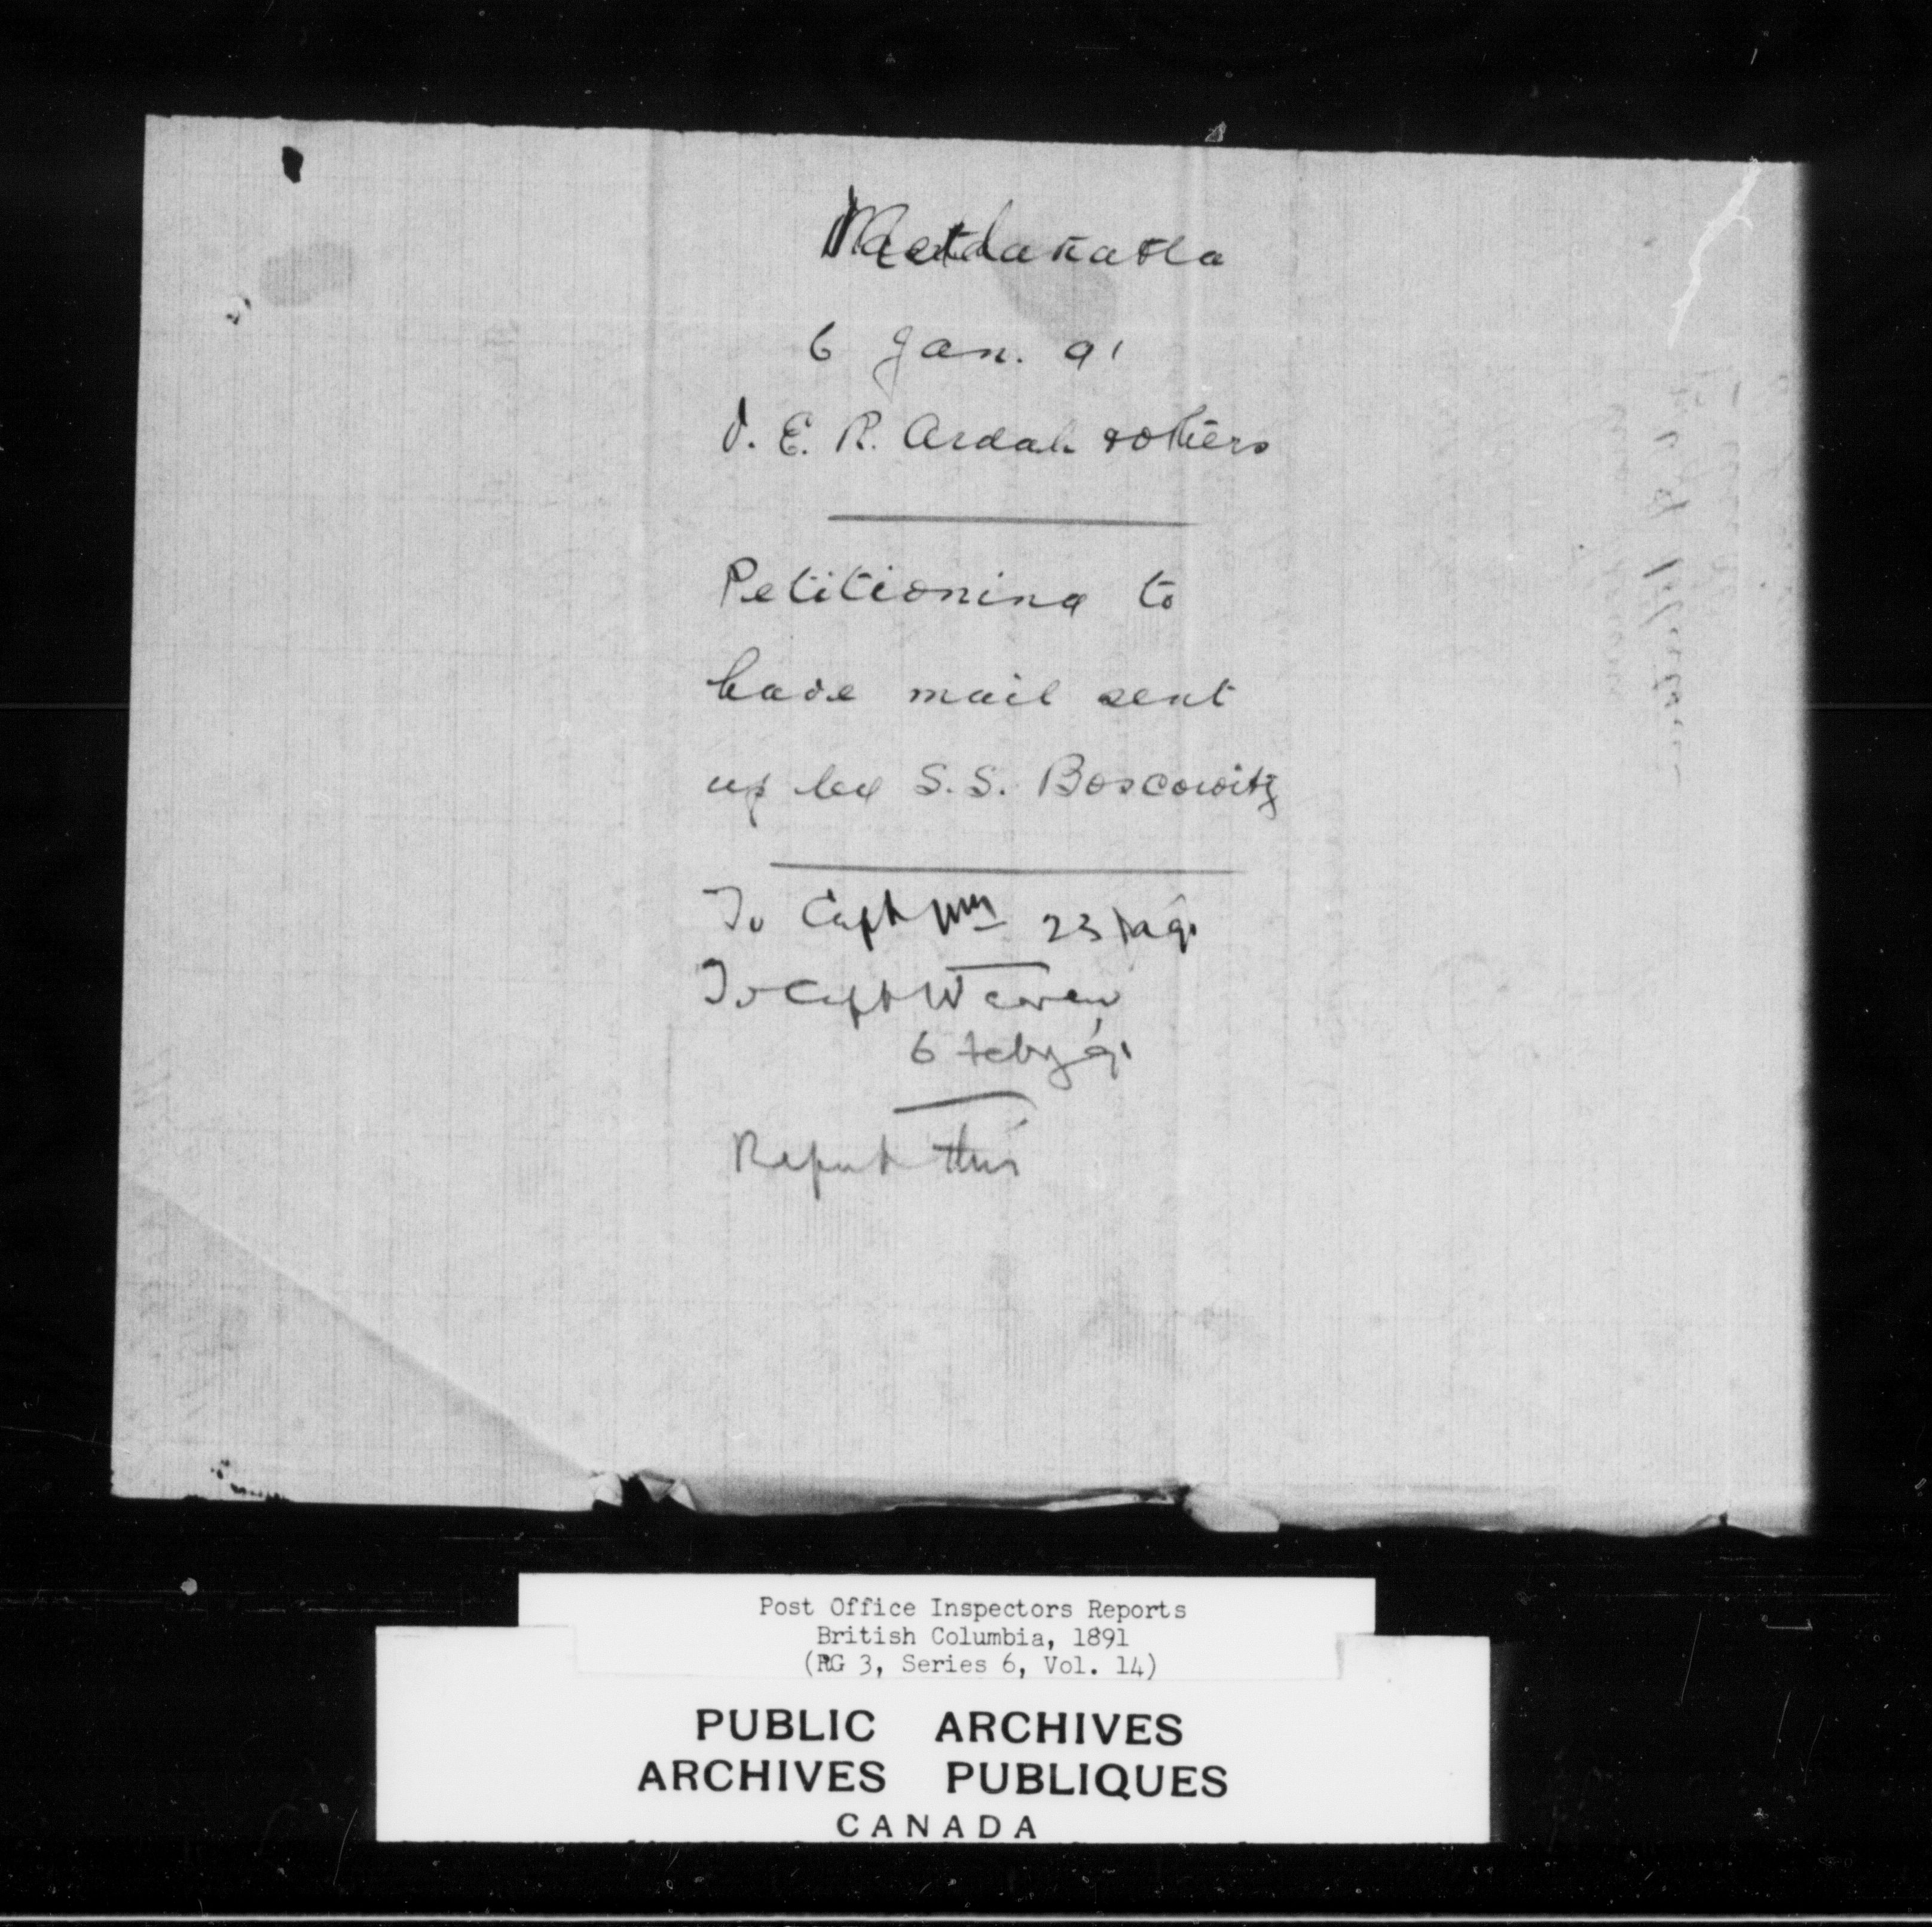 Metlakatla
6 Jan. 91
J. E. R. Ardah & others
Petitioning to
have mail sent
up by S.S. Boscowitz
To Capt 23
To Capt Warren
6 Feby 91
Report this
Post Office Inspectors Reports
British Columbia, 1891
(RG 3, Series 6, Vol. 14)
PUBLIC ARCHIVES
ARCHIVES PUBLIQUES
CANADA